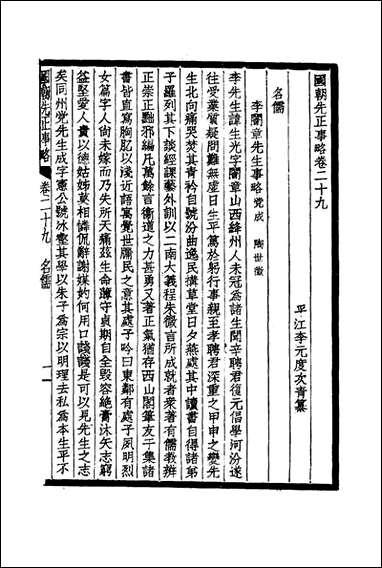 國朝先正事略卷二十九
平江李元度次青纂
名儒
李闇章先生事略 党成 陶世徵
李先生諱生光字闇章山西絳州人未冠為諸生聞辛聘君復元倡學河汾遂
往受業質疑問難無虛日生平篤於躬行事親至孝聘君深重之甲申之變先
生北向痛哭焚其青衿自號汾曲逸民搆草堂日夕燕處其中讀書自得諸弟
子羅列其下談經課藝外訓以二南大義程朱微言所成就者衆著有儒教辨
正崇正黜邪編凡萬餘言衞道之力甚勇又著正氣猶存西山閣筆友于集諸
書皆直寫胸肊以淺近語寓覺世牖民之意其處子吟曰東鄰有處子夙明烈
女篇字人尚未嫁而乃失所天痛茲生命薄守貞期自全毀容絶膏沐矢志窮
益堅愛人貴以德姑姊莫相憐侃辭謝媒妁何用口諓諓是可以見先生之志
矣同州党先生成字憲公號冰壑其學以朱子為宗以明理去私為本生平不
國朝先正事略 卷二十九 名儒 一